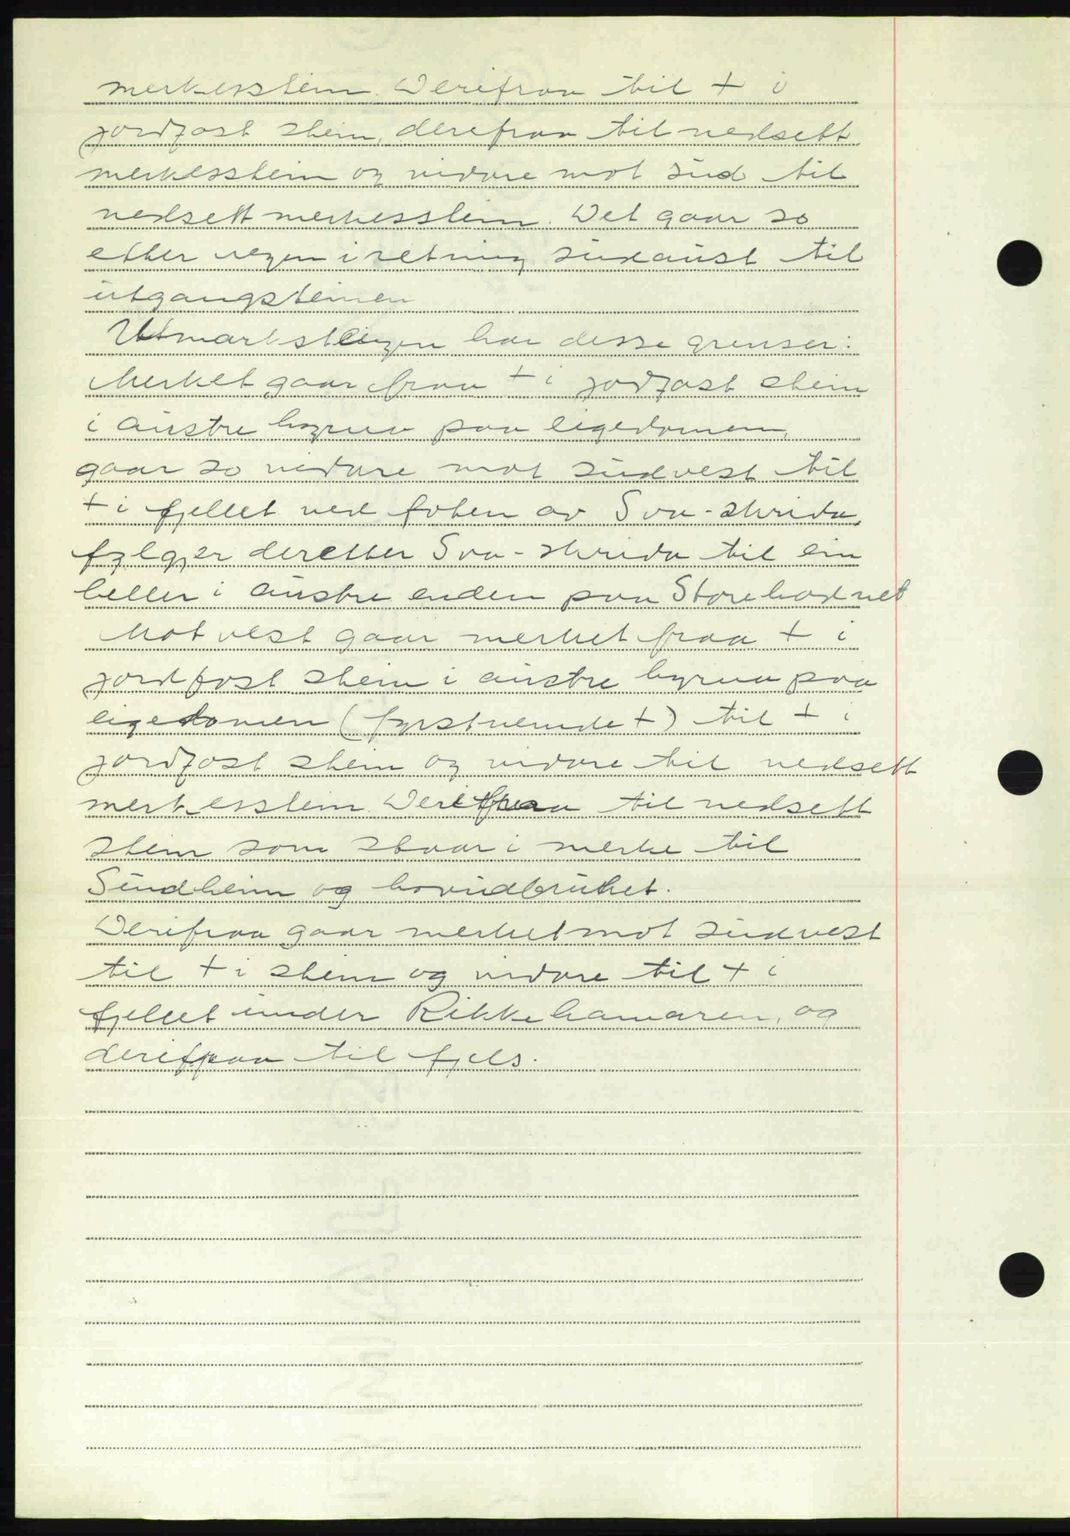 merkesstein. Derifraa til + i
jordfast stein, derefraa til nedsett
merkesstein og vidare mot sud til
nedsett merkesstein. Det gaar so
etter vegen i retning sudaust til
utgangsteinen
Utmarksteigen har desse grenser:
Merket gaar fraa + i jordfast stein
i austre hyrna paa eigedomen,
gaar so vidare mot sudvest til
+ i fjellet ved foten av Sva-skrida,
fylgjer deretter Sva-skrida til ein
heller i austre enden paa
Mot vest gaar merket fraa + i
jordfast stein i austre hyrna paa
eigedomen (fyrstnemnde +) til + i
jordfast stein og vidare til nedsett
merkesstein Derifraa til nedsett
stein som staar i merke til
Sundheim og hovudbruket.
Derifraa gaar merket mot sudvest
til + i stein og vidare til + i
fjellet under Rikkehamaren, og
derifraa til fjels.